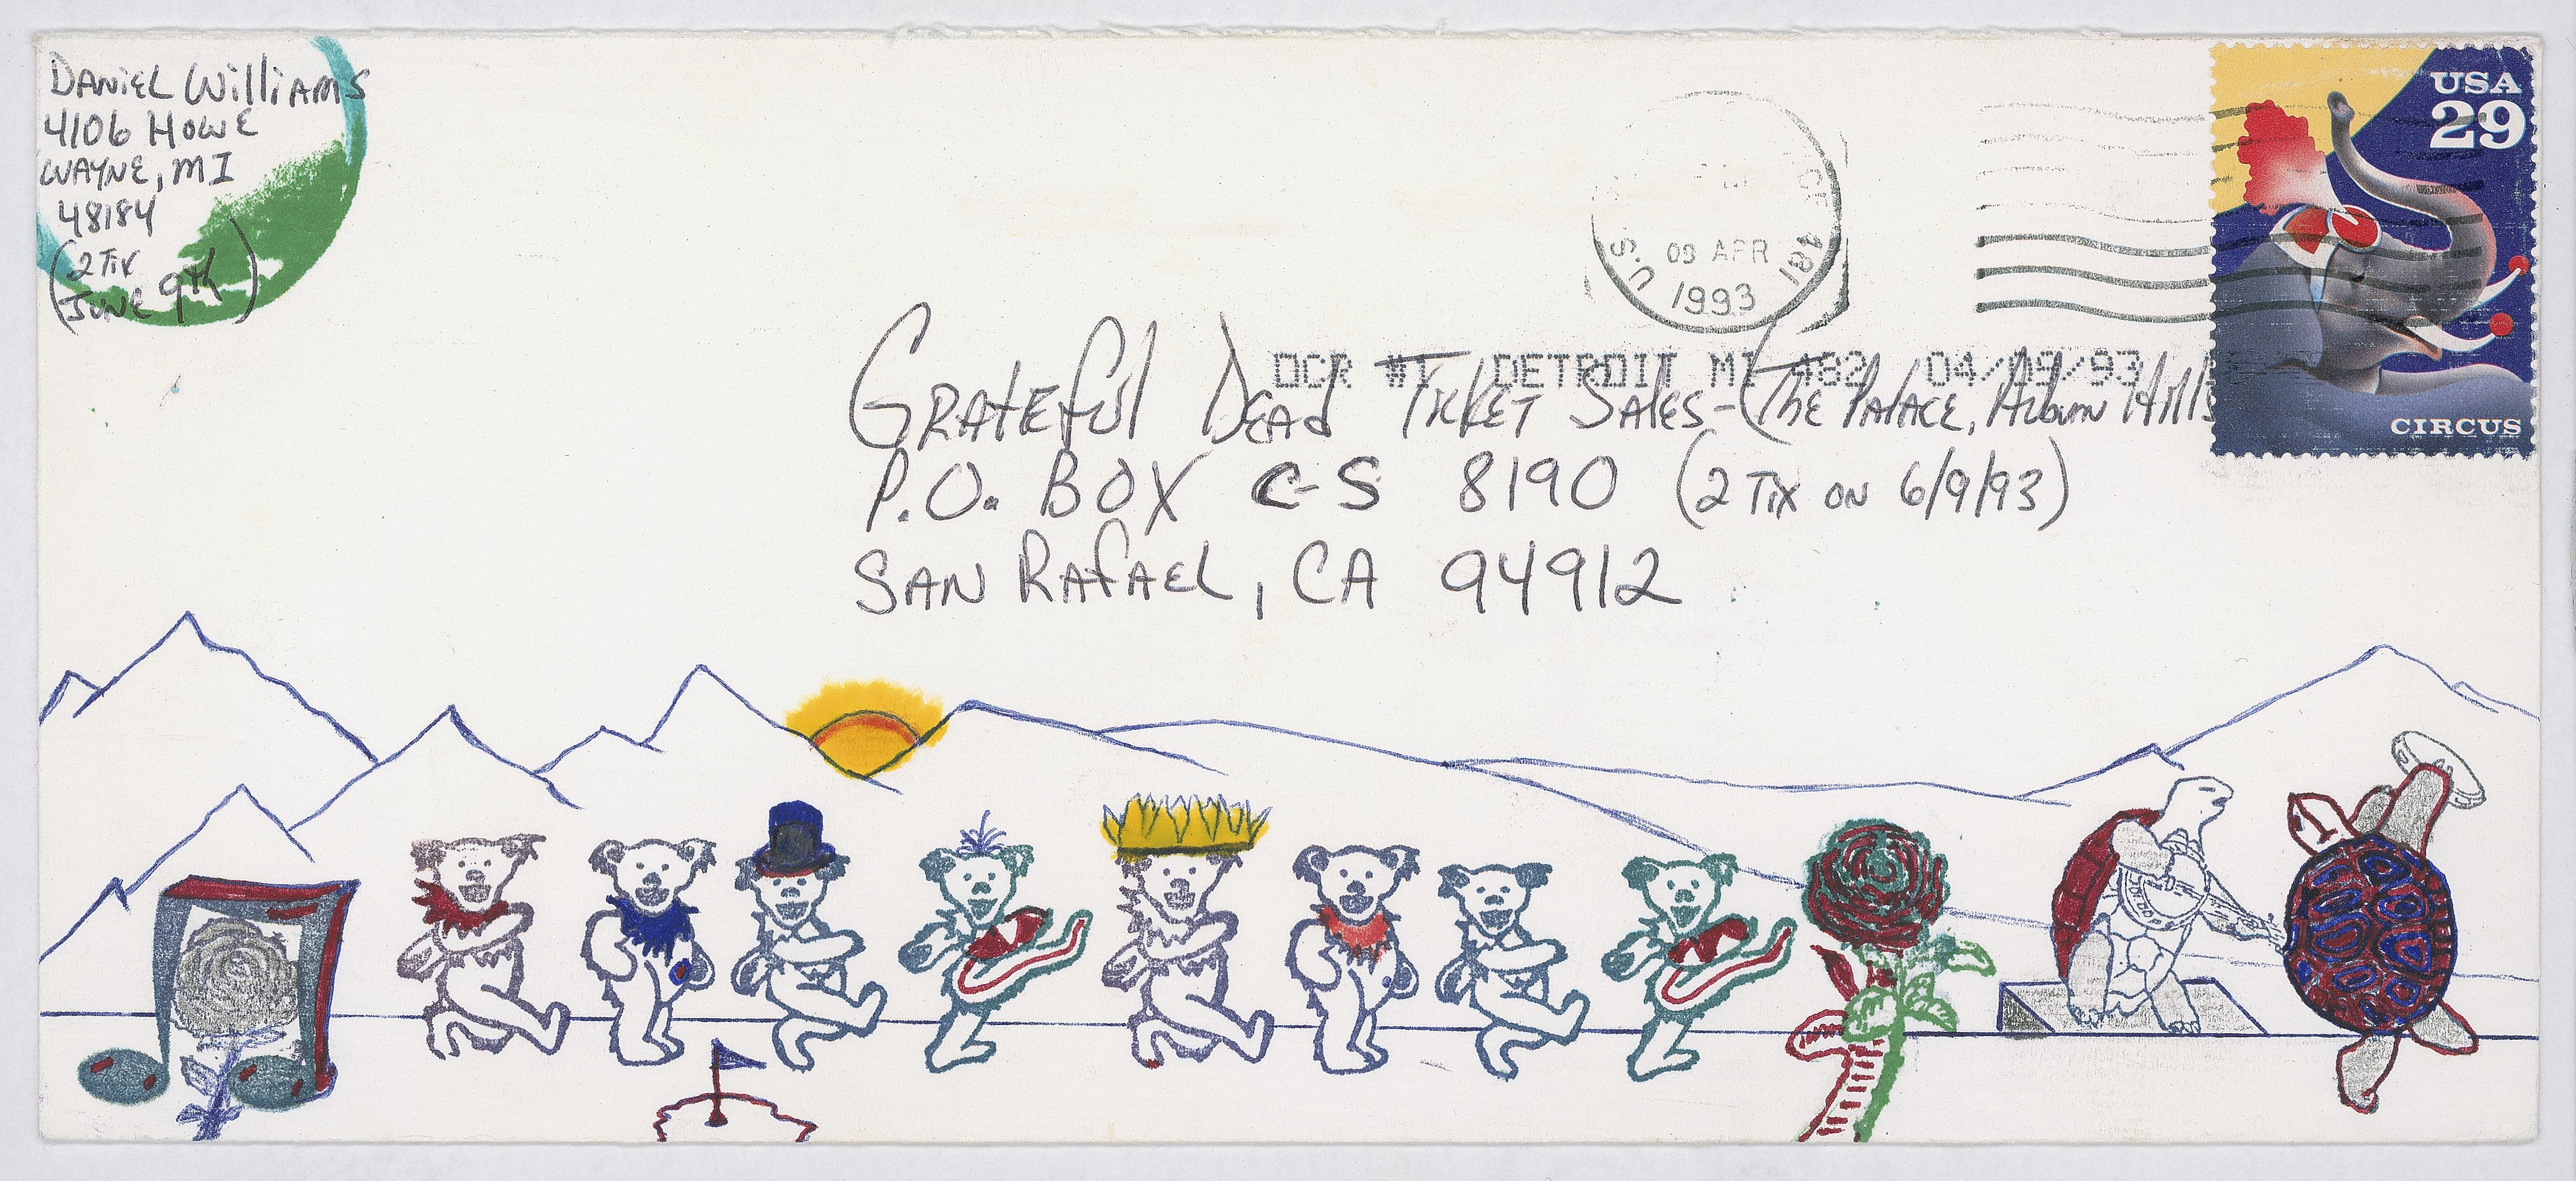 DANIEL WilliAMS
4106 HOWE
WAYNE, MI
48184
(2 Tix
JUNE 9th)
USA
29
CIRCUS
U.S.
481
09 APR
1993
OCR #1 DETROIT MI 482 04/09/93
GRATEFUL DEAD TICKET SALES-(THE PALACE, AUBURN HILLS
P.O. BOX C-S 8190 (2 Tix ON 6/9/93)
SAN RAFAEL, CA 94912